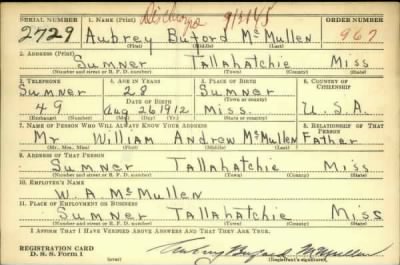 SERIAL NUMBER 1. NAME (Print) ORDER NUMBER
2729 Aubrey Buford McMullen 967
(First) (Middle) (Last)
2. ADDRESS (Print)
Sumner Tallahatchie Miss
(Number and street or R. F. D. number) (Town) (County) (State)
3. TELEPHONE 4. AGE IN YEARS 5. PLACE OF BIRTH 6. COUNTRY OF CITIZENSHIP
Sumner 28 Sumner
(Town or county)
DATE OF BIRTH
49 Aug 26 1912 Miss. U.S.A.
(Exchange) (Number) (Mo.) (Day) (Yr.) (State or country)
7. NAME OF PERSON WHO WILL ALWAYS KNOW YOUR ADDRESS 8. RELATIONSHIP OF THAT PERSON
Mr. William Andrew McMullen Father
(Mr., Mrs., Miss) (First) (Middle) (Last)
9. ADDRESS OF THAT PERSON
Sumner Tallahatchie Miss
(Number and street or R. F. D. number) (Town) (County) (State)
10. EMPLOYER'S NAME
W. A. McMullen
11. PLACE OF EMPLOYMENT OR BUSINESS
Sumner Tallahatchie Miss
(Number and street or R. F. D. number) (Town) (County) (State)
I AFFIRM THAT I HAVE VERIFIED ABOVE ANSWERS AND THAT THEY ARE TRUE.
REGISTRATION CARD
D. S. S. Form 1 Aubrey Buford McMullen
(Registrant's signature)